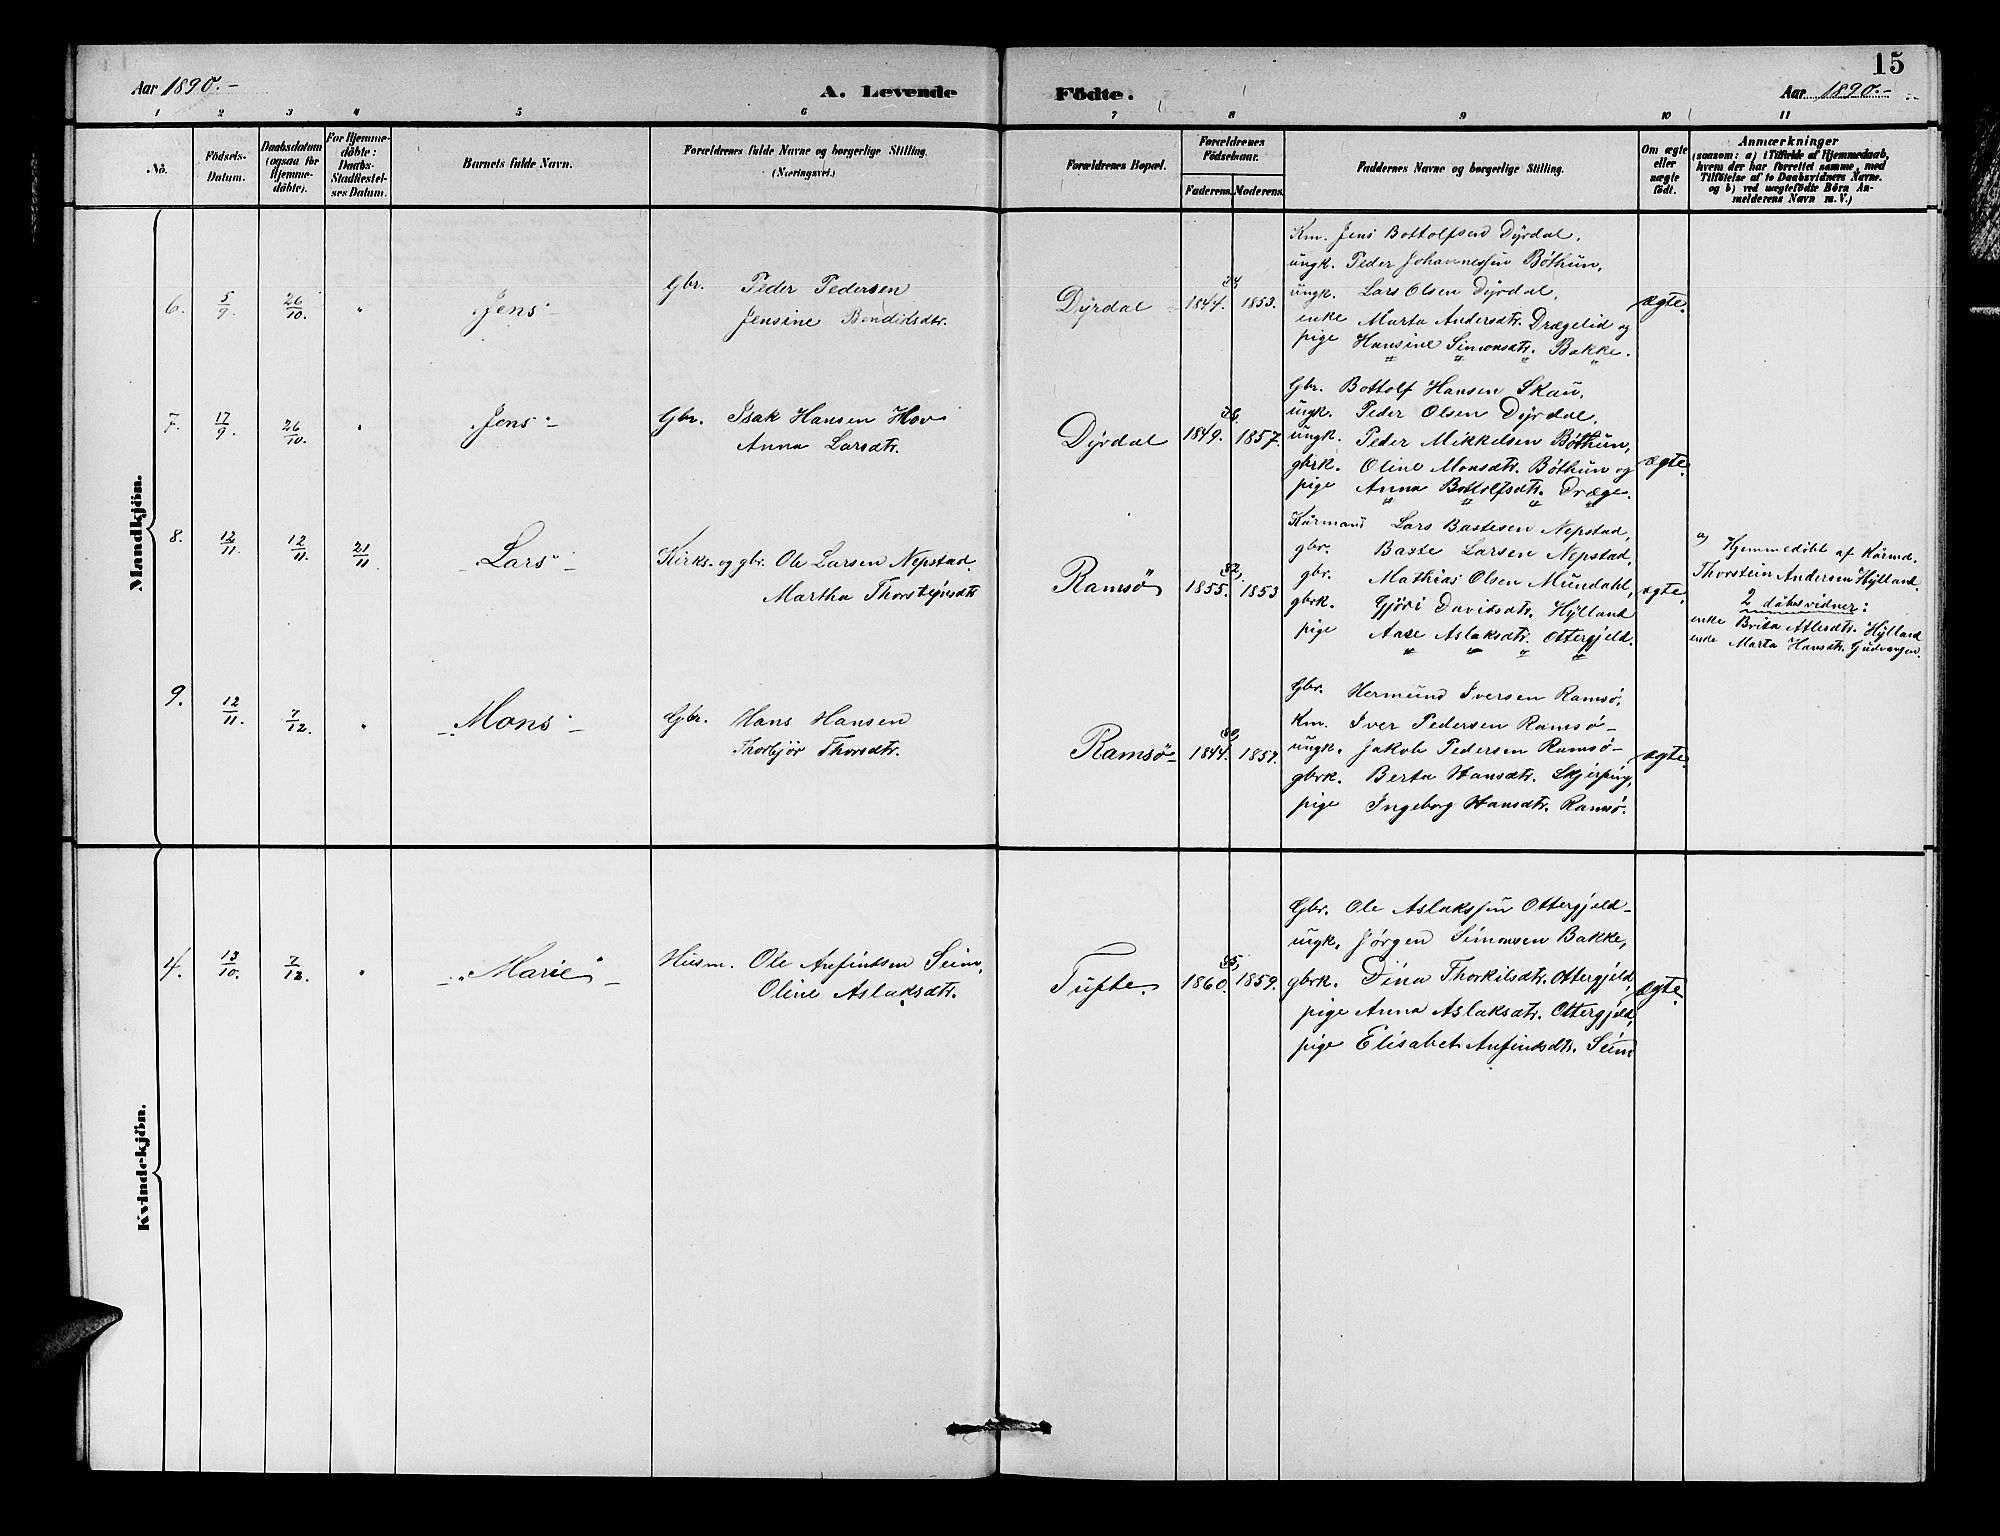 15
Aar 1890.-
A. Levende
Födte.
Aar 1890.-
1 2 3 4 5 6 7 8 9 10 11
No.
Födsels-Datum.
Daabsdatum (ogsaa for Hjemme-döbte).
For Hjemme-döbte: Daabs-Stadfæstel-ses Datum.
Barnets fulde Navn.
Forældrenes fulde Navne og borgerlige Stilling.
(Næringsvei.)
Forældrenes Bopæl.
Forældrenes Födselsaar.
Faderens. Moderens.
Faddernes Navne og borgerlige Stilling.
Om ægte eller uægte födt.
Anmærkninger
(saasom: a) i Tilfælde af Hjemmedaab,
hvem der har forrettet samme, med
Tilföielse af to Daabsvidners Navne.
og b) ved uægtefödte Börn An-
melderens Navn m. V.)
Mandkjön.
6. 5/9 26/10 " Jens
Gbr. Peder Pedersen
Jensine Bendiksdtr.
Dÿrdal 1844. 1853.
Km. Jens Bottolfsen Dÿrdal,
ungk. Peder Johannessen Bøthun,
ungk. Lars Olsen Dÿrdal,
enke Marta Andersdtr. Drægelid og
pige Hansine Simonsdtr. Bakke.
ægte.
7. 17/9 26/10 " Jens
Gbr. Isak Hansen Hov
Anna Larsdtr.
Dÿrdal 1849. 1857.
Gbr. Bottolf Hansen Skau,
ungk. Peder Olsen Dÿrdal,
ungk. Peder Mikkelsen Bøthun,
gbrk. Oline Monsdtr. Bøthun og
pige Anna Bottolfsdtr. Dræge.
ægte.
8. 12/11 12/11 21/11 Lars
Kirks- og gbr. Ole Larsen Nepstad
Martha Thorsteinsdtr
Ramsö 1855. 1853
Kårmand Lars Bastesen Nepstad,
gbr. Baste Larsen Nepstad,
gbr. Mathias Olsen Mundahl,
gbrk. Gjöri Davidsdtr. Hÿlland
pige Aase Aslaksdtr. Ottergjeld.
ægte.
a) Hjemmedøbt af Kårmd.
Thorstein Andersen Hÿlland.
2 dåbsvidner:
enke Brita Atlesdtr. Hÿlland
enke Marta Hansdtr. Gudvangen.
9. 12/11. 7/12. " Mons
Gbr. Hans Hansen
Thorbjör Thorsdtr.
Ramsö 1844. 1857.
Gbr. Hermund Iversen Ramsö,
Km. Iver Pedersen Ramsö-
ungk. Jakob Pedersen Ramsö-
gbrk. Berta Hansdtr. Skjerping,
pige Ingeborg Hansdtr. Ramsö.
ægte.
Kvindekjön.
4. 13/10. 7/12. " Marie
Husm. Ole Anfindsen Seim,
Oline Aslaksdtr.
Tufte. 1860. 1859.
Gbr. Ole Aslakssen Ottergjeld-
ungk. Jörgen Simonsen Bakke,
gbrk. Dina Thorkilsdtr. Ottergjeld,
pige Anna Aslaksdtr. Ottergjeld,
pige Elisabet Anfindsdtr. Seim
ægte.